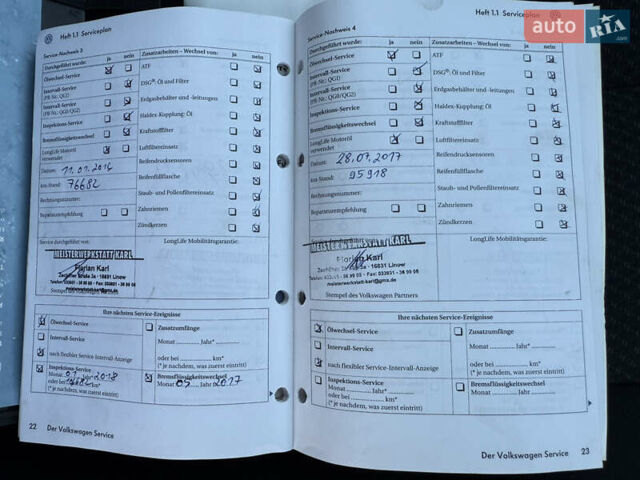 Heft 1.1 Serviceplan
Service-Nachweis 3
Durchgeführt wurde: ja nein
Ölwechsel-Service
Intervall-Service
(PR-Nr.: QG1)
Intervall-Service
(PR-Nr.: QG0/QG2)
Inspektions-Service
Bremsflüssigkeitswechsel
LongLife Motoröl
verwendet
Datum:
km-Stand: 76682
Rechnungsnummer:
Reparaturempfehlung
Zusatzarbeiten – Wechsel von: ja nein
ATF
DSG®: Öl und Filter
Erdgasbehälter und -leitungen
Haldex-Kupplung: Öl
Kraftstofffilter
Luftfiltereinsatz
Reifendrucksensoren
Reifenfüllflasche
Staub- und Pollenfiltereinsatz
Zahnriemen
Zündkerzen
Service durchgeführt von:
MEISTERWERKSTATT KARL
Florian Karl
Zechliner Straße 3a - 16831 Linow
meisterwerkstatt-karl@gmx.de
Stempel des Volkswagen
LongLife Mobilitätsgarantie:
Ihre nächsten Service-Ereignisse
Ölwechsel-Service
Intervall-Service
nach flexibler Service-Intervall-Anzeige
Inspektions-Service
Monat
oder bei km*
Zusatzumfänge
Monat Jahr*
oder bei km*
(* je nachdem, was zuerst eintritt)
Bremsflüssigkeitswechsel
Monat 05 Jahr 2017
(* je nachdem, was zuerst eintritt)
22 Der Volkswagen Service
Heft 1.1 Serviceplan
Service-Nachweis 4
Durchgeführt wurde: ja nein
Ölwechsel-Service
Intervall-Service
(PR-Nr.: QG1)
Intervall-Service
(PR-Nr.: QG0/QG2)
Inspektions-Service
Bremsflüssigkeitswechsel
LongLife Motoröl
verwendet
Datum: 28.07.2017
km-Stand: 95918
Rechnungsnummer:
Reparaturempfehlung
Zusatzarbeiten – Wechsel von: ja nein
ATF
DSG®: Öl und Filter
Erdgasbehälter und -leitungen
Haldex-Kupplung: Öl
Kraftstofffilter
Luftfiltereinsatz
Reifendrucksensoren
Reifenfüllflasche
Staub- und Pollenfiltereinsatz
Zahnriemen
Zündkerzen
MEISTERWERKSTATT KARL
Florian Karl
Zechliner Straße 3a - 16831 Linow
meisterwerkstatt-karl@gmx.de
Stempel des Volkswagen Partners
LongLife Mobilitätsgarantie:
Ihre nächsten Service-Ereignisse
Ölwechsel-Service
Intervall-Service
nach flexibler Service-Intervall-Anzeige
Inspektions-Service
Monat Jahr*
oder bei km*
(* je nachdem, was zuerst eintritt)
Zusatzumfänge
Monat Jahr*
oder bei km*
(* je nachdem, was zuerst eintritt)
Bremsflüssigkeitswechsel
Monat Jahr
Der Volkswagen Service 23
auto RIA.com